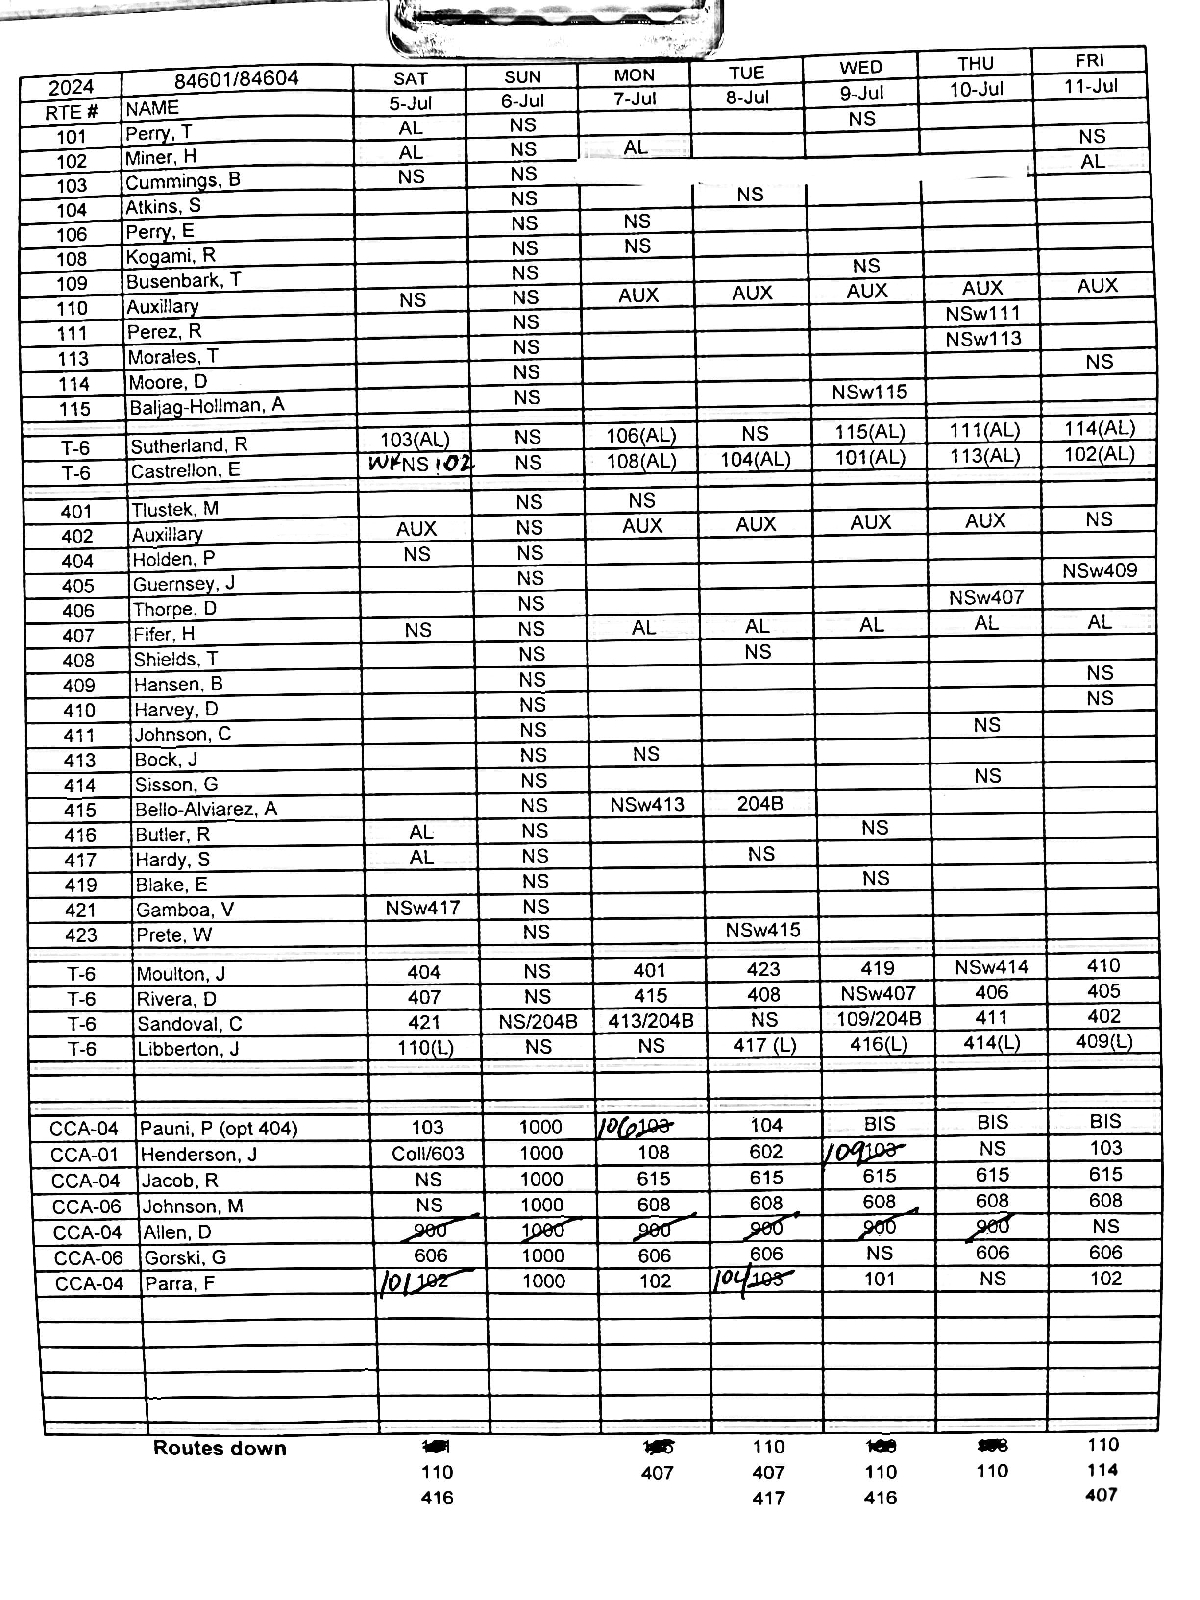 2024 84601/84604 SAT SUN MON TUE WED THU FRI
RTE # NAME 5-Jul 6-Jul 7-Jul 8-Jul 9-Jul 10-Jul 11-Jul
101 Perry, T AL NS NS
102 Miner, H AL NS AL NS
103 Cummings, B NS NS AL
104 Atkins, S NS NS
106 Perry, E NS NS
108 Kogami, R NS NS
109 Busenbark, T NS NS
110 Auxillary NS NS AUX AUX AUX AUX AUX
111 Perez, R NS NSw111
113 Morales, T NS NSw113
114 Moore, D NS NS
115 Baljag-Hollman, A NS NSw115
T-6 Sutherland, R 103(AL) NS 106(AL) NS 115(AL) 111(AL) 114(AL)
T-6 Castrellon, E NS 102 NS 108(AL) 104(AL) 101(AL) 113(AL) 102(AL)
401 Tlustek, M NS NS
402 Auxillary AUX NS AUX AUX AUX AUX NS
404 Holden, P NS NS
405 Guernsey, J NS NSw409
406 Thorpe. D NS NSw407
407 Fifer, H NS NS AL AL AL AL AL
408 Shields, T NS NS
409 Hansen, B NS NS
410 Harvey, D NS NS
411 Johnson, C NS NS
413 Bock, J NS NS
414 Sisson, G NS NS
415 Bello-Alviarez, A NS NSw413 204B
416 Butler, R AL NS NS
417 Hardy, S AL NS NS
419 Blake, E NS NS
421 Gamboa, V NSw417 NS
423 Prete, W NS NSw415
T-6 Moulton, J 404 NS 401 423 419 NSw414 410
T-6 Rivera, D 407 NS 415 408 NSw407 406 405
T-6 Sandoval, C 421 NS/204B 413/204B NS 109/204B 411 402
T-6 Libberton, J 110(L) NS NS 417 (L) 416(L) 414(L) 409(L)
CCA-04 Pauni, P (opt 404) 103 1000 106 103 104 BIS BIS BIS
CCA-01 Henderson, J Coll/603 1000 108 602 109 103 NS 103
CCA-04 Jacob, R NS 1000 615 615 615 615 615
CCA-06 Johnson, M NS 1000 608 608 608 608 608
CCA-04 Allen, D 900 1000 900 900 900 900 NS
CCA-06 Gorski, G 606 1000 606 606 NS 606 606
CCA-04 Parra, F 101 102 1000 102 104 103 101 NS 102
Routes down 110 110
110 407 407 110 110 114
416 417 416 407